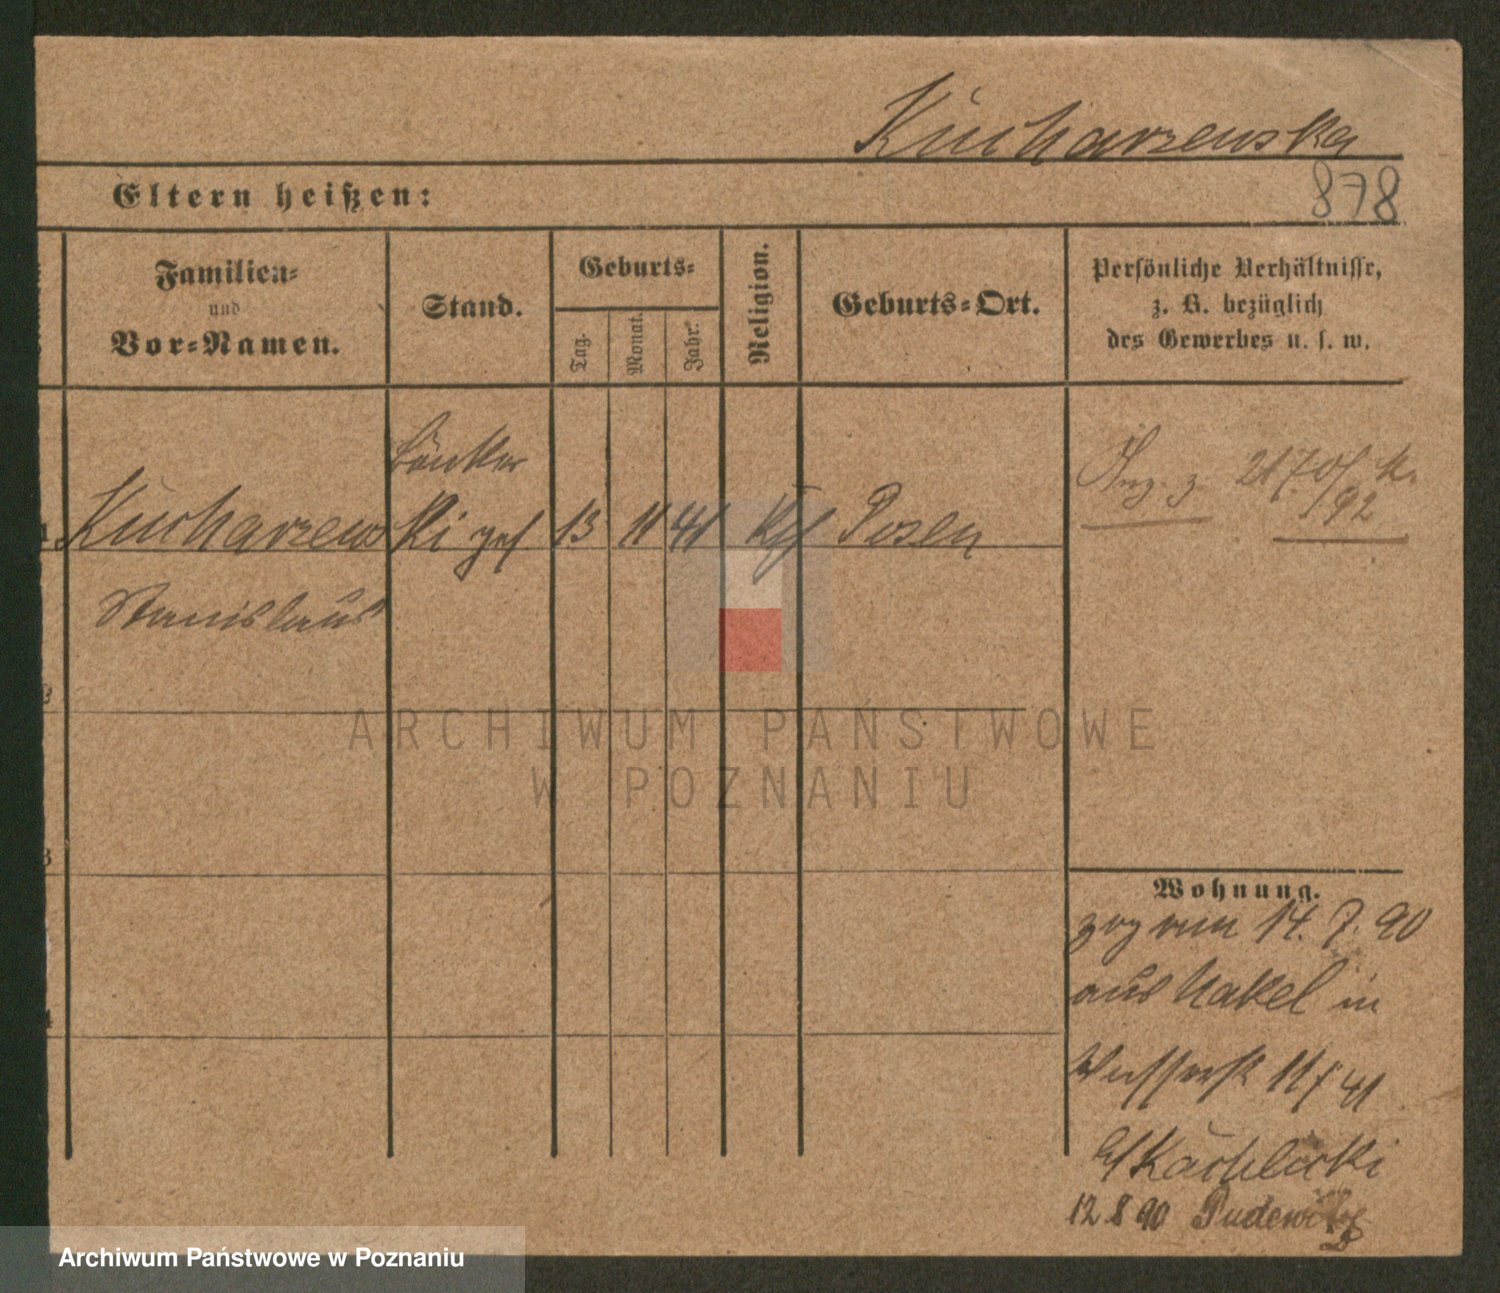 Kucharzewska
878
Eltern heißen:
Familien-
und
Vor-Namen.
Stand.
Geburts-
Tag.
Monat.
Jahr.
Religion.
Geburts-Ort.
Persönliche Verhältnisse,
z. B. bezüglich
des Gewerbes u. s. w.
1 Kucharzewski 13 11 41 Posen
92
Stanislaus
2
3
4
Wohnung.
zog am 14. 7. 90
aus Nakel in
12 8 90 Pudewitz
ARCHIWUM PAŃSTWOWE
W POZNANIU
Archiwum Państwowe w Poznaniu